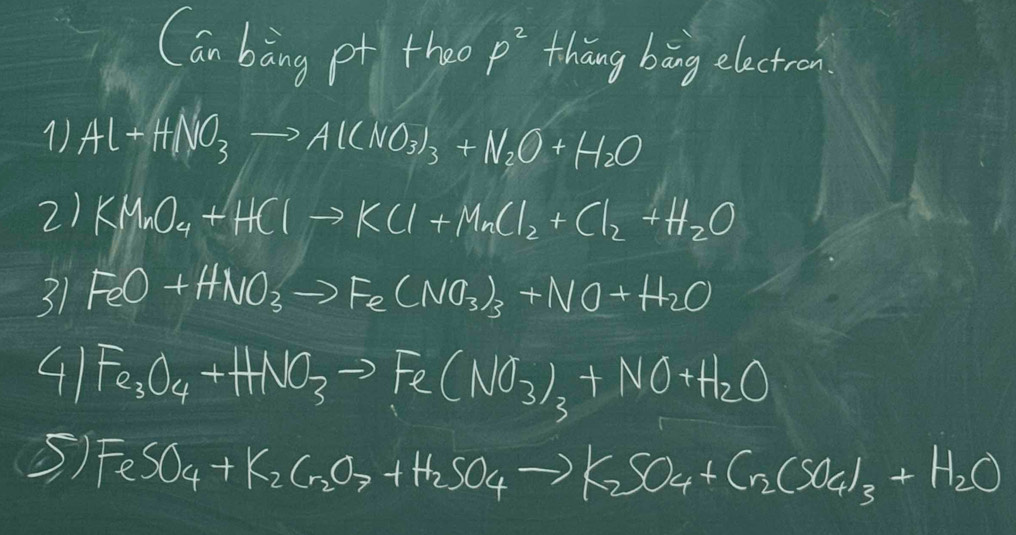 Cân bằng pt theo p² thăng bằng electron.
1) Al + HNO₃ → Al(NO₃)₃ + N₂O + H₂O
2) KMnO₄ + HCl → KCl + MnCl₂ + Cl₂ + H₂O
3) FeO + HNO₃ → Fe(NO₃)₃ + NO + H₂O
4) Fe₃O₄ + HNO₃ → Fe(NO₃)₃ + NO + H₂O
5) FeSO₄ + K₂Cr₂O₇ + H₂SO₄ → K₂SO₄ + Cr₂(SO₄)₃ + H₂O